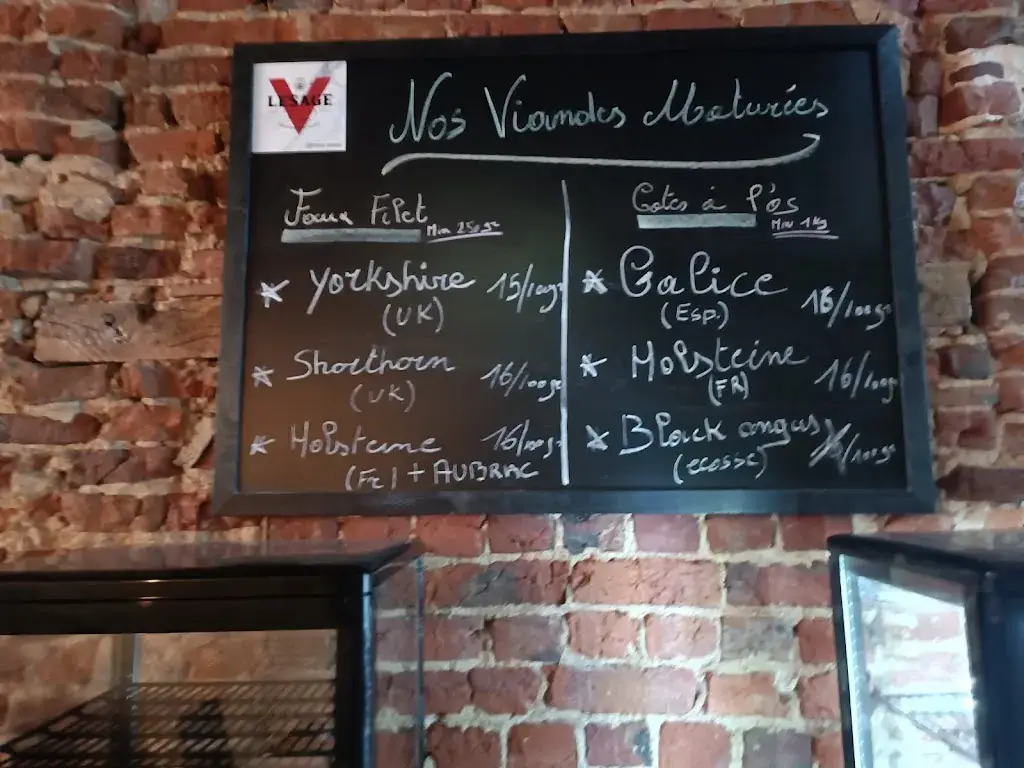 LESAGE
Nos Viandes Maturées
Faux Filet Min 250gr
* Yorkshire 15/100gr
(UK)
* Shorthorn 16/100gr
(UK)
* Holsteine 16/100gr
(Fr) + AUBRAC
Cotes à l'os
Min 1Kg
* Galice 16/100gr
(Esp.)
* Holsteine 16/100gr
(FR)
* Black angus /100gr
(ecosse)